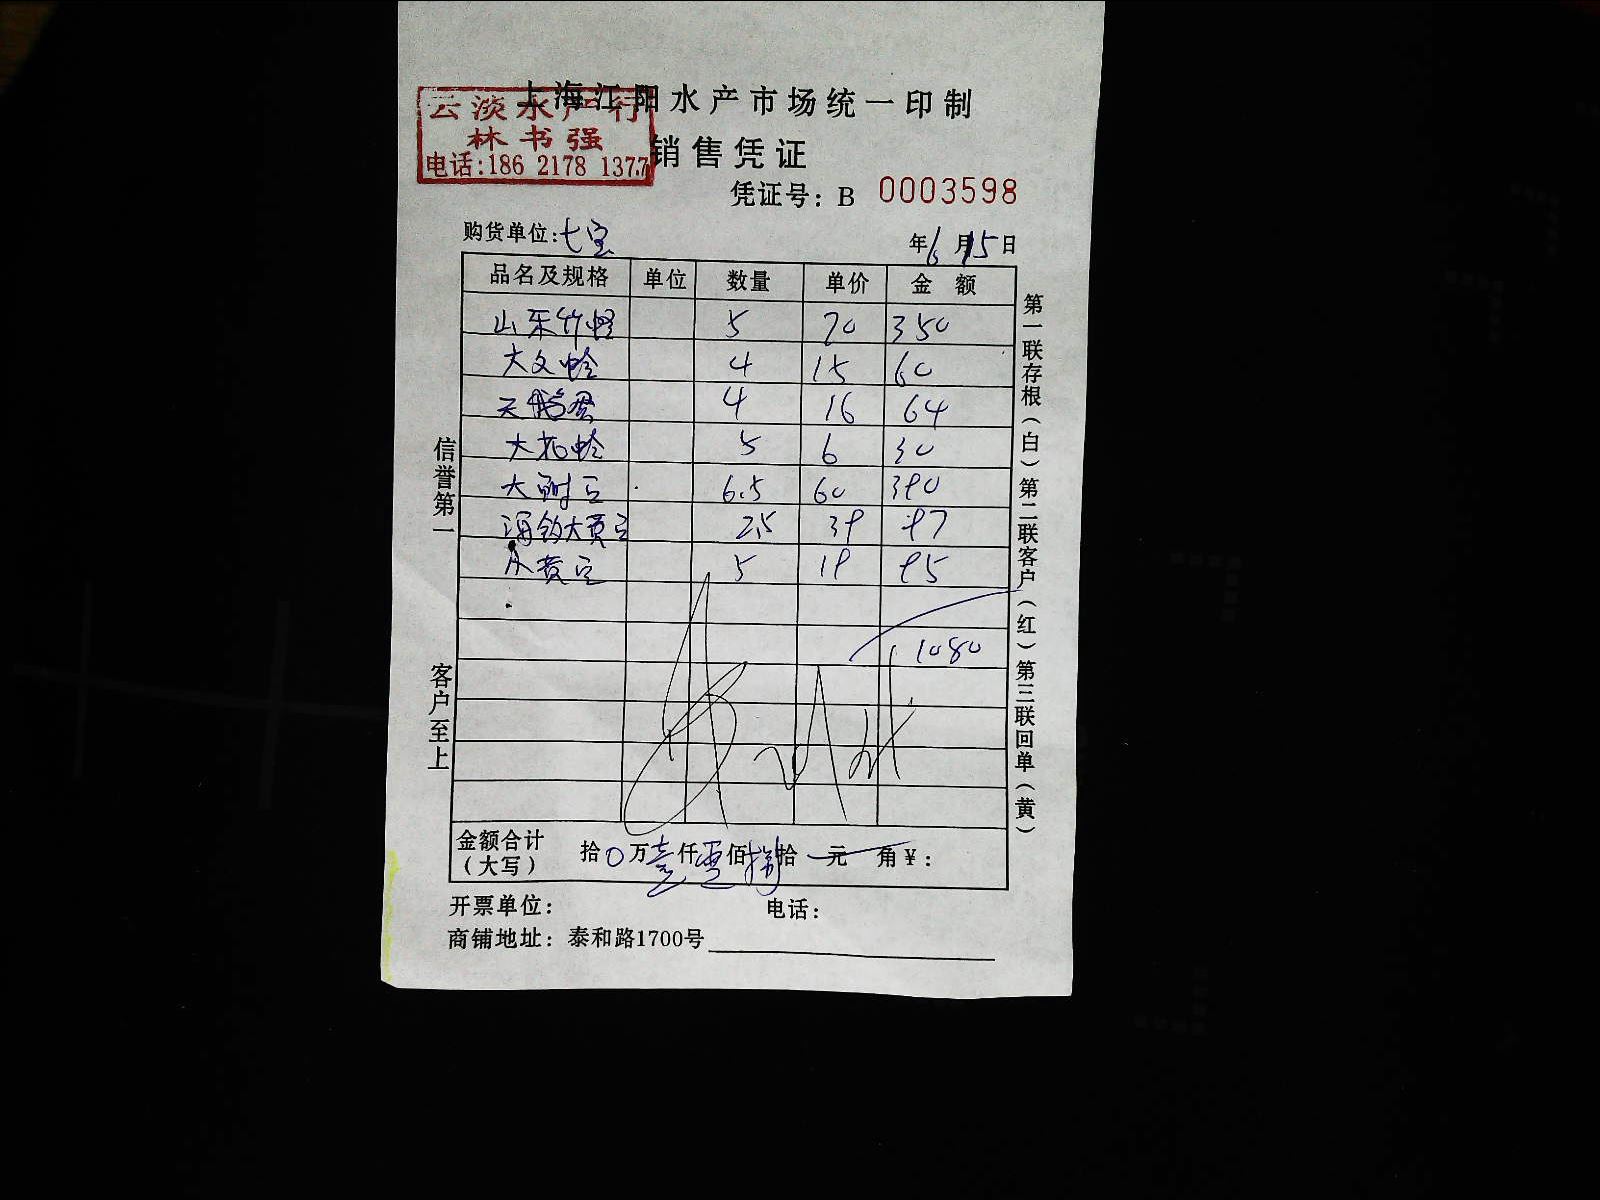 上海江阳水产市场统一印制
云淡水产行
林书强
电话:186 2178 1377
销售凭证
凭证号: B 0003598
购货单位:七宝 年6月15日
品名及规格 单位 数量 单价 金 额
山东竹蛏 5 70 350
大文蛤 4 15 60
天鹅蛋 4 16 64
大花蛤 5 6 30
大 豆 6.5 60 390
海钓大黄豆 2.5 39 97
小黄豆 5 19 95
1080
金额合计(大写) 拾0万壹仟零佰捌拾一元 角¥:
开票单位: 电话:
商铺地址: 泰和路1700号
信誉第一
客户至上
第一联存根(白)第二联客户(红)第三联回单(黄)